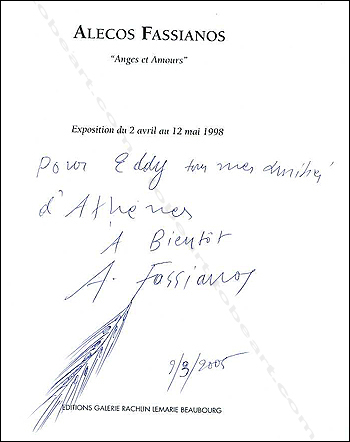 ALECOS FASSIANOS
"Anges et Amours"
Exposition du 2 avril au 12 mai 1998
Pour Eddy tous mes amitiés
d'Athènes
A Bientôt
A. Fassianos
9/3/2005
EDITIONS GALERIE RACHLIN LEMARIE BEAUBOURG